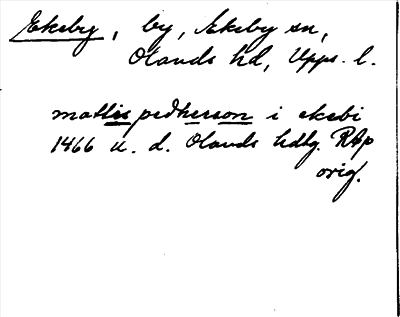 Ekeby, by, Ekeby sn,
Olands hd, Upps. l.
mattis pedherson i ekebi
1466 u. d. Olands hdlg. RAp
orig.